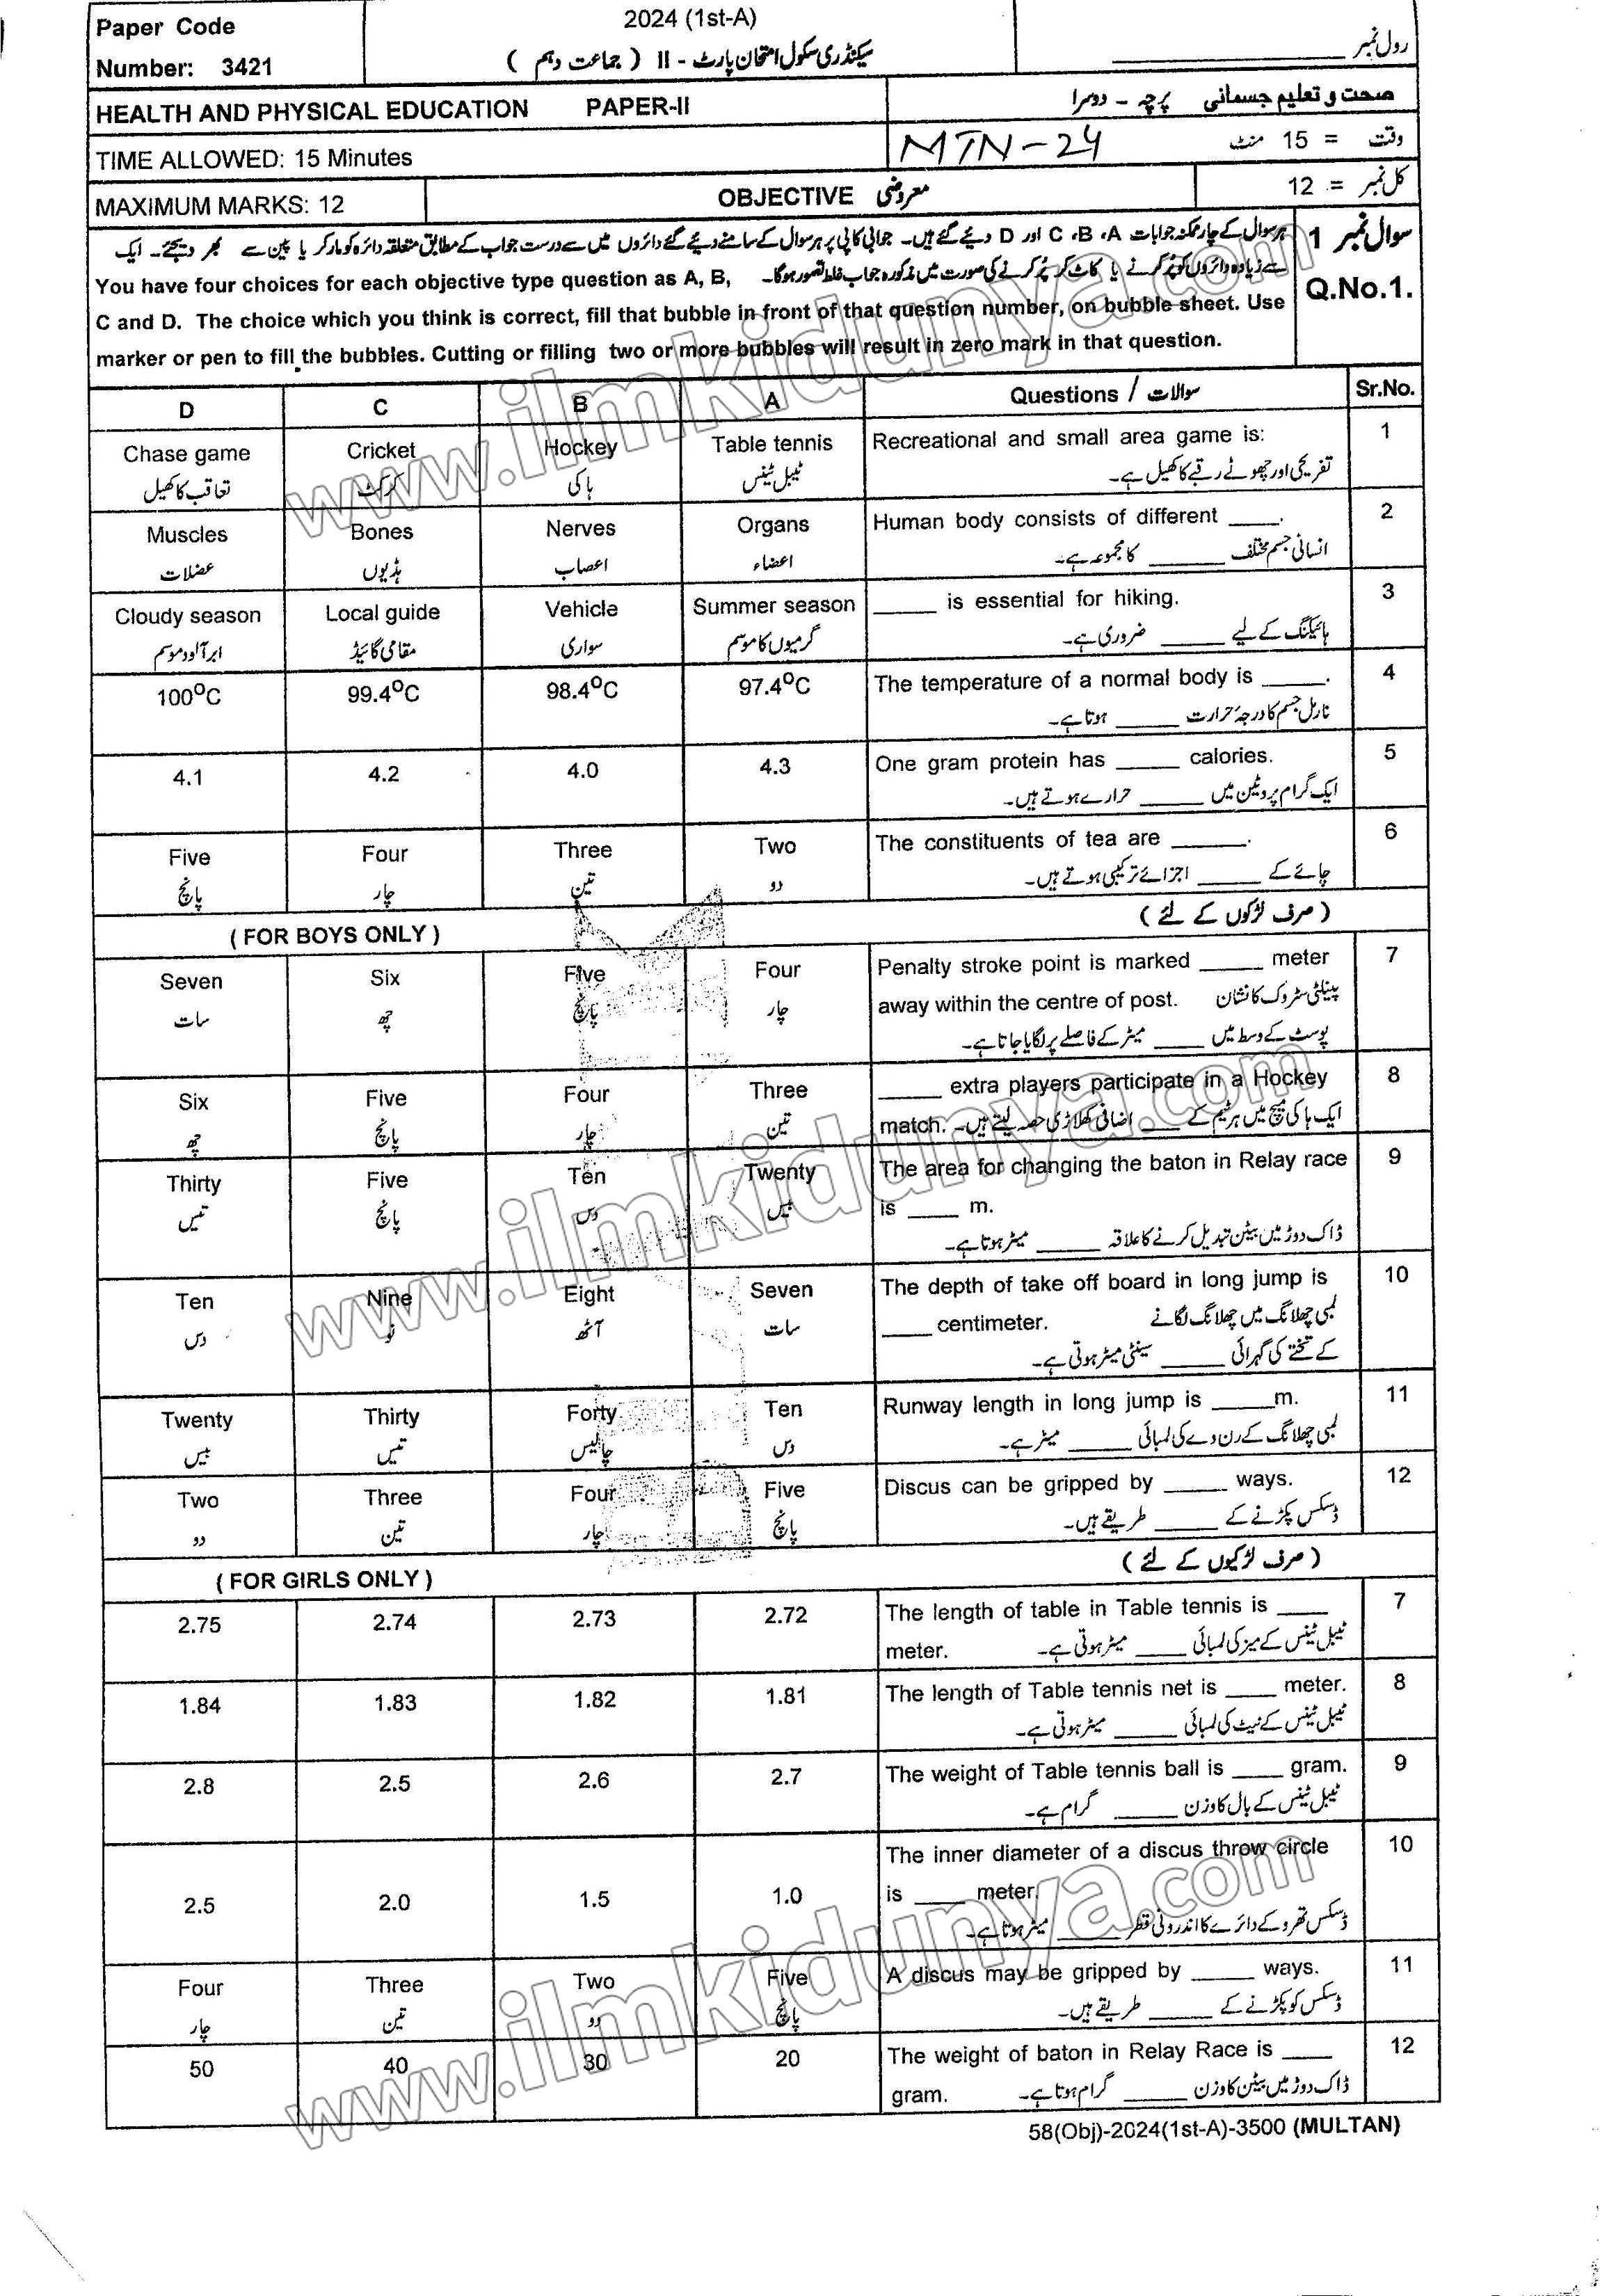 Paper Code
Number: 3421
2024 (1st-A)
سیکنڈری سکول امتحان پارٹ - II ( جماعت دہم )
رول نمبر
HEALTH AND PHYSICAL EDUCATION PAPER-II
صحت و تعلیم جسمانی پرچہ - دوسرا
TIME ALLOWED: 15 Minutes
MTN-24
وقت = 15 منٹ
MAXIMUM MARKS: 12
OBJECTIVE معروضی
کل نمبر = 12
سوال نمبر 1
Q.No.1.
ہر سوال کے چار ممکنہ جوابات A، B، C اور D دیئے گئے ہیں۔ جوابی کاپی پر ہر سوال کے سامنے دیئے گئے دائروں میں سے درست جواب کے مطابق متعلقہ دائرہ کو مارکر یا پین سے بھر دیجئے۔ ایک
سے زیادہ دائروں کو پُر کرنے یا کاٹ کر پُر کرنے کی صورت میں مذکورہ جواب غلط تصور ہوگا۔
You have four choices for each objective type question as A, B,
C and D. The choice which you think is correct, fill that bubble in front of that question number, on bubble sheet. Use
marker or pen to fill the bubbles. Cutting or filling two or more bubbles will result in zero mark in that question.
D C B A Questions / سوالات Sr.No.
Chase game Cricket Hockey Table tennis Recreational and small area game is: 1
تعاقب کا کھیل کرکٹ ہاکی ٹیبل ٹینس تفریحی اور چھوٹے رقبے کا کھیل ہے۔
Muscles Bones Nerves Organs Human body consists of different ____. 2
عضلات ہڈیوں اعصاب اعضاء انسانی جسم مختلف ______ کا مجموعہ ہے۔
Cloudy season Local guide Vehicle Summer season _____ is essential for hiking. 3
ابر آلود موسم مقامی گائیڈ سواری گرمیوں کا موسم ہائیکنگ کے لیے _____ ضروری ہے۔
100°C 99.4°C 98.4°C 97.4°C The temperature of a normal body is _____. 4
نارمل جسم کا درجہ حرارت _____ ہوتا ہے۔
4.1 4.2 4.0 4.3 One gram protein has _____ calories. 5
ایک گرام پروٹین میں _____ حرارے ہوتے ہیں۔
Five Four Three Two The constituents of tea are ______. 6
پانچ چار تین دو چائے کے _____ اجزائے ترکیبی ہوتے ہیں۔
( FOR BOYS ONLY ) ( صرف لڑکوں کے لئے )
Seven Six Five Four Penalty stroke point is marked _____ meter 7
سات چھ پانچ چار away within the centre of post. پینلٹی سٹروک کا نشان
پوسٹ کے وسط میں ____ میٹر کے فاصلے پر لگایا جاتا ہے۔
Six Five Four Three _____ extra players participate in a Hockey 8
چھ پانچ چار تین match. ایک ہاکی میچ میں ہر ٹیم کے ___ اضافی کھلاڑی حصہ لیتے ہیں۔
Thirty Five Ten Twenty The area for changing the baton in Relay race 9
تیس پانچ دس بیس is ____ m.
ڈاک دوڑ میں بیٹن تبدیل کرنے کا علاقہ _____ میٹر ہوتا ہے۔
Ten Nine Eight Seven The depth of take off board in long jump is 10
دس نو آٹھ سات ____ centimeter. لمبی چھلانگ میں چھلانگ لگانے
کے تختے کی گہرائی _____ سینٹی میٹر ہوتی ہے۔
Twenty Thirty Forty Ten Runway length in long jump is _____m. 11
بیس تیس چالیس دس لمبی چھلانگ کے رن وے کی لمبائی _____ میٹر ہے۔
Two Three Four Five Discus can be gripped by _____ ways. 12
دو تین چار پانچ ڈسکس پکڑنے کے _____ طریقے ہیں۔
( FOR GIRLS ONLY ) ( صرف لڑکیوں کے لئے )
2.75 2.74 2.73 2.72 The length of table in Table tennis is ____ 7
meter. ٹیبل ٹینس کے میز کی لمبائی ____ میٹر ہوتی ہے۔
1.84 1.83 1.82 1.81 The length of Table tennis net is ____ meter. 8
ٹیبل ٹینس کے نیٹ کی لمبائی _____ میٹر ہوتی ہے۔
2.8 2.5 2.6 2.7 The weight of Table tennis ball is ____ gram. 9
ٹیبل ٹینس کے بال کا وزن _____ گرام ہے۔
2.5 2.0 1.5 1.0 The inner diameter of a discus throw circle 10
is ____ meter.
ڈسکس تھرو کے دائرے کا اندرونی قطر _____ میٹر ہوتا ہے۔
Four Three Two Five A discus may be gripped by _____ ways. 11
چار تین دو پانچ ڈسکس کو پکڑنے کے _____ طریقے ہیں۔
50 40 30 20 The weight of baton in Relay Race is ____ 12
gram. ڈاک دوڑ میں بیٹن کا وزن _____ گرام ہوتا ہے۔
58(Obj)-2024(1st-A)-3500 (MULTAN)
www.ilmkidunya.com
www.ilmkidunya.com
www.ilmkidunya.com